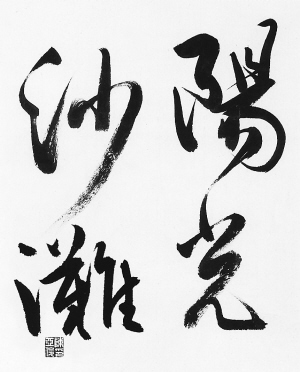 陽光
沙灘